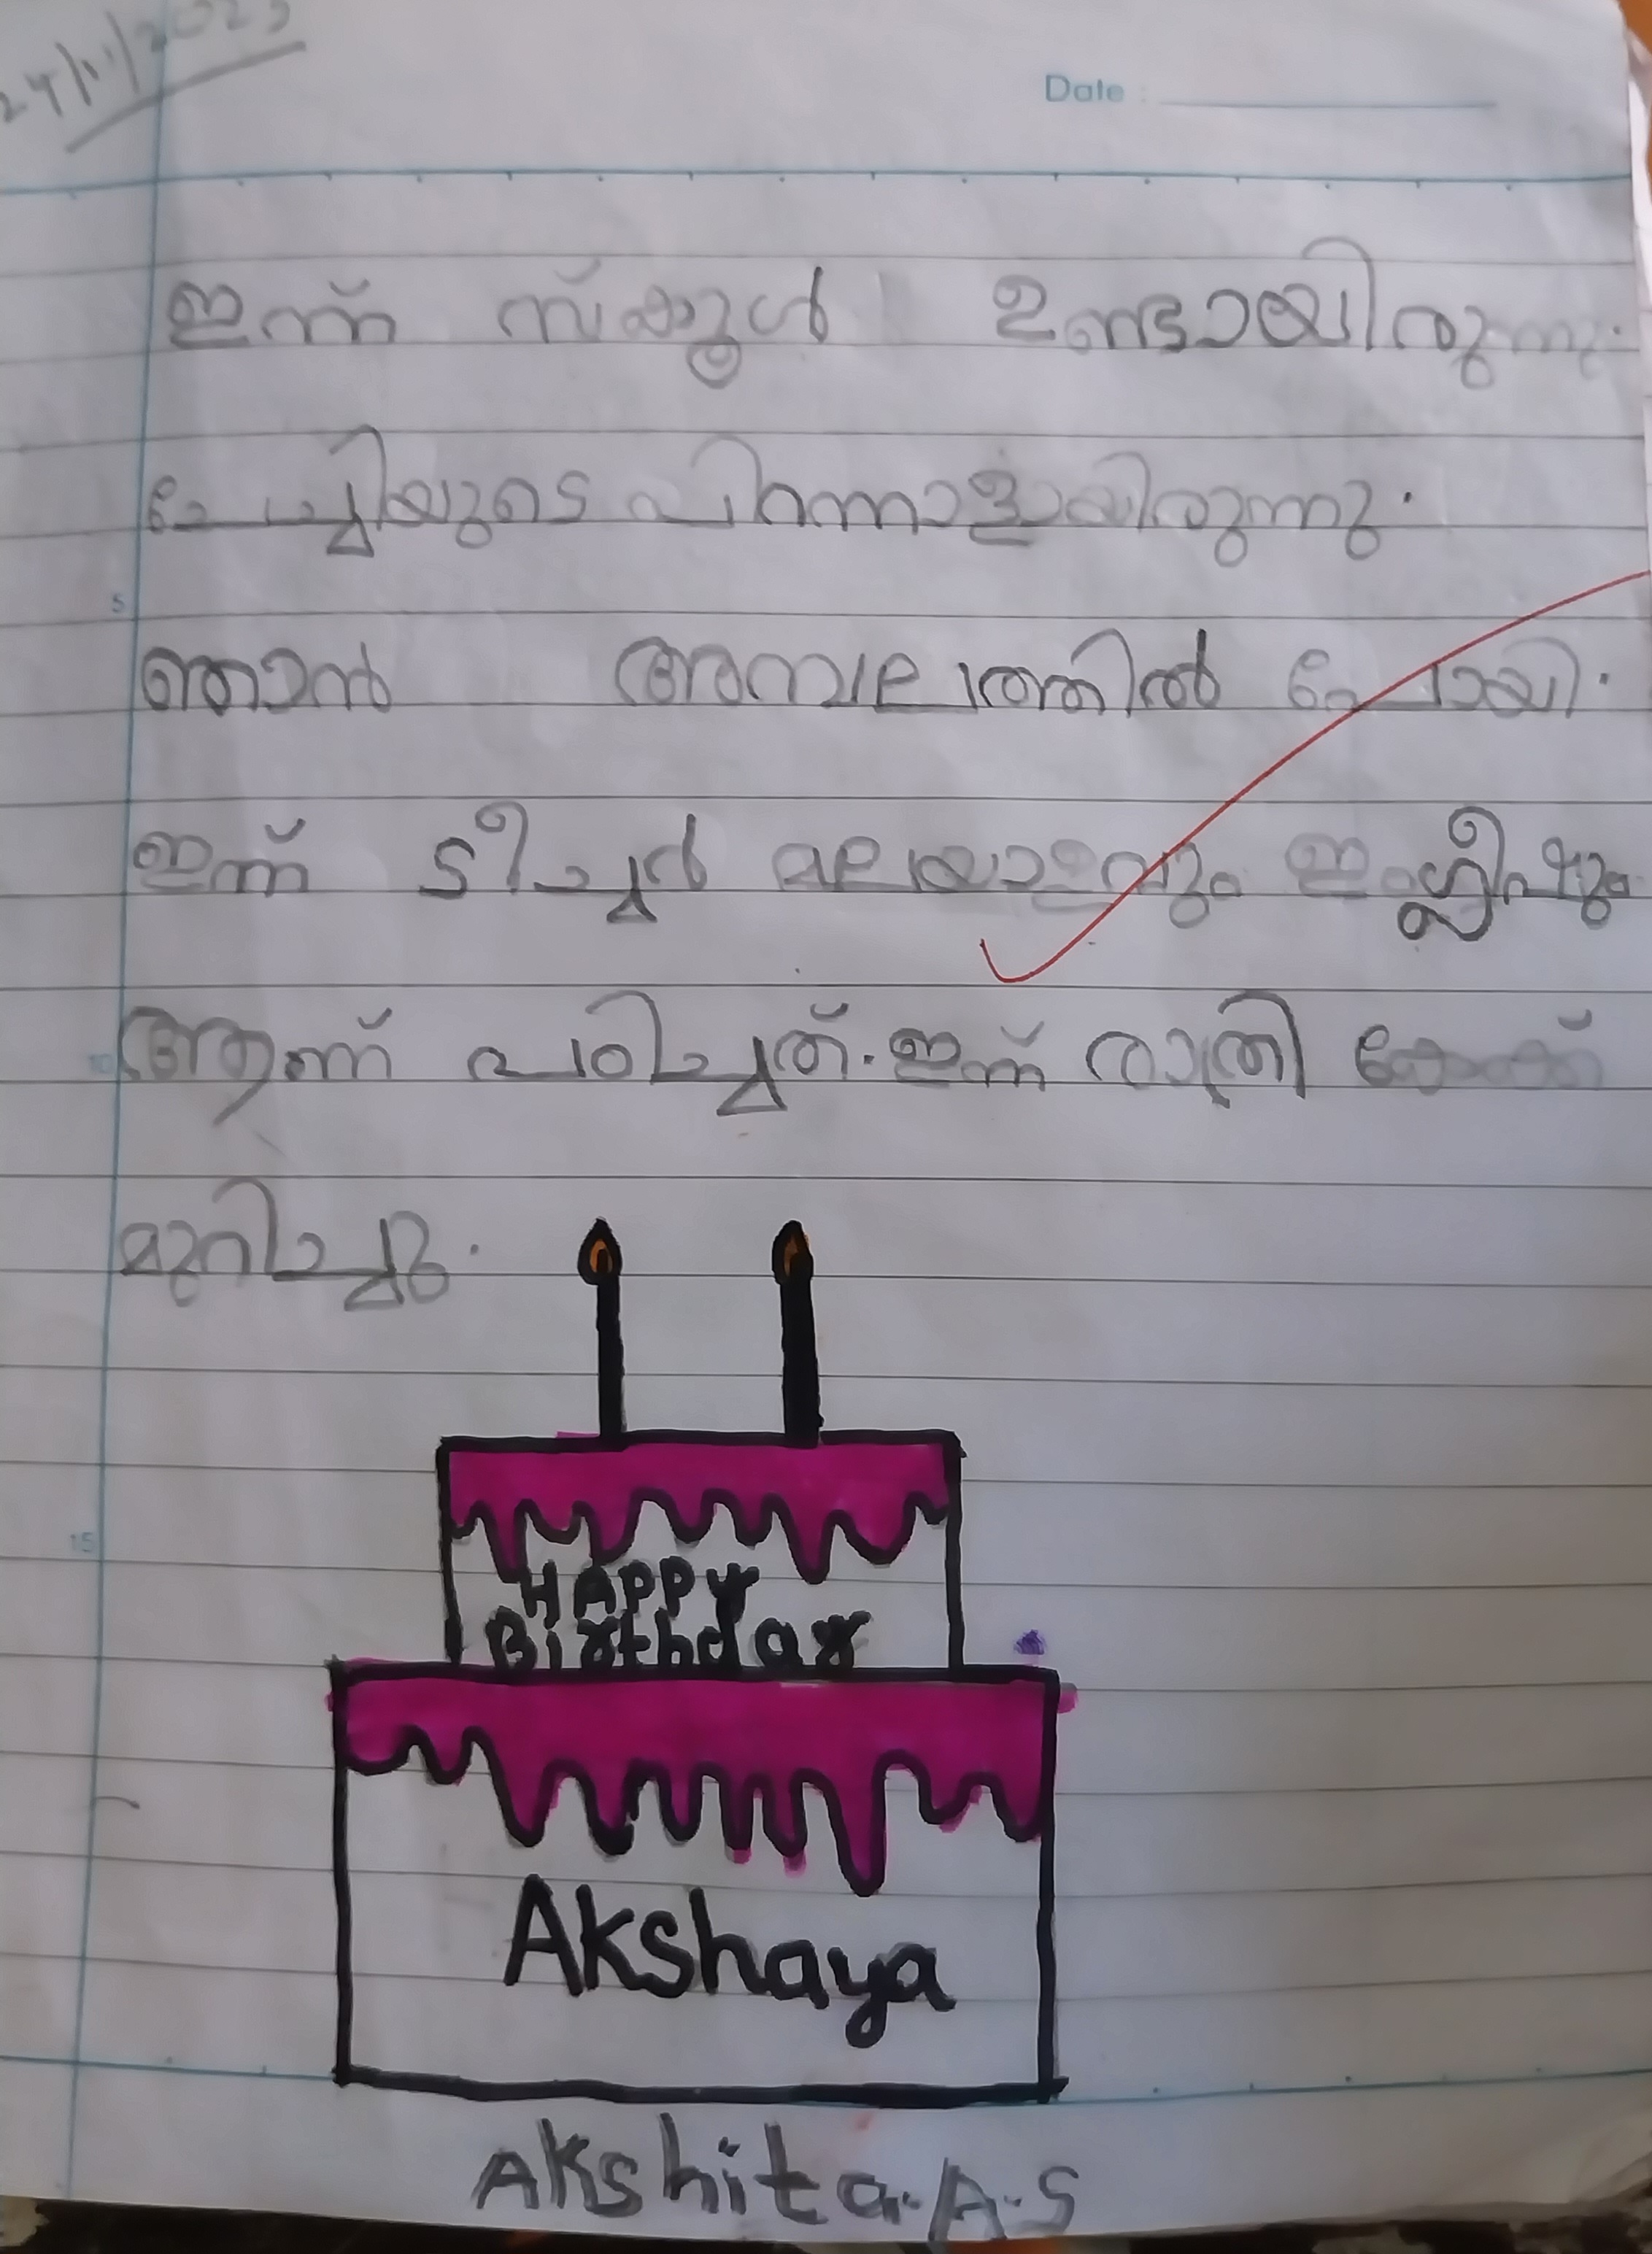 24/11/2023
Date :
ഇന്ന് സ്കൂൾ ഉണ്ടായിരുന്നു.
ചേച്ചിയുടെ പിറന്നാളായിരുന്നു.
5
ഞാൻ അമ്പലത്തിൽ പോയി.
ഇന്ന് ടീച്ചർ മലയാളവും ഇംഗ്ലീഷും
10
ആണ് പഠിച്ചത്. ഇന്ന് രാത്രി കേക്ക്
മുറിച്ചു.
15
HAPPY
Birthday
Akshaya
Akshita.A.S